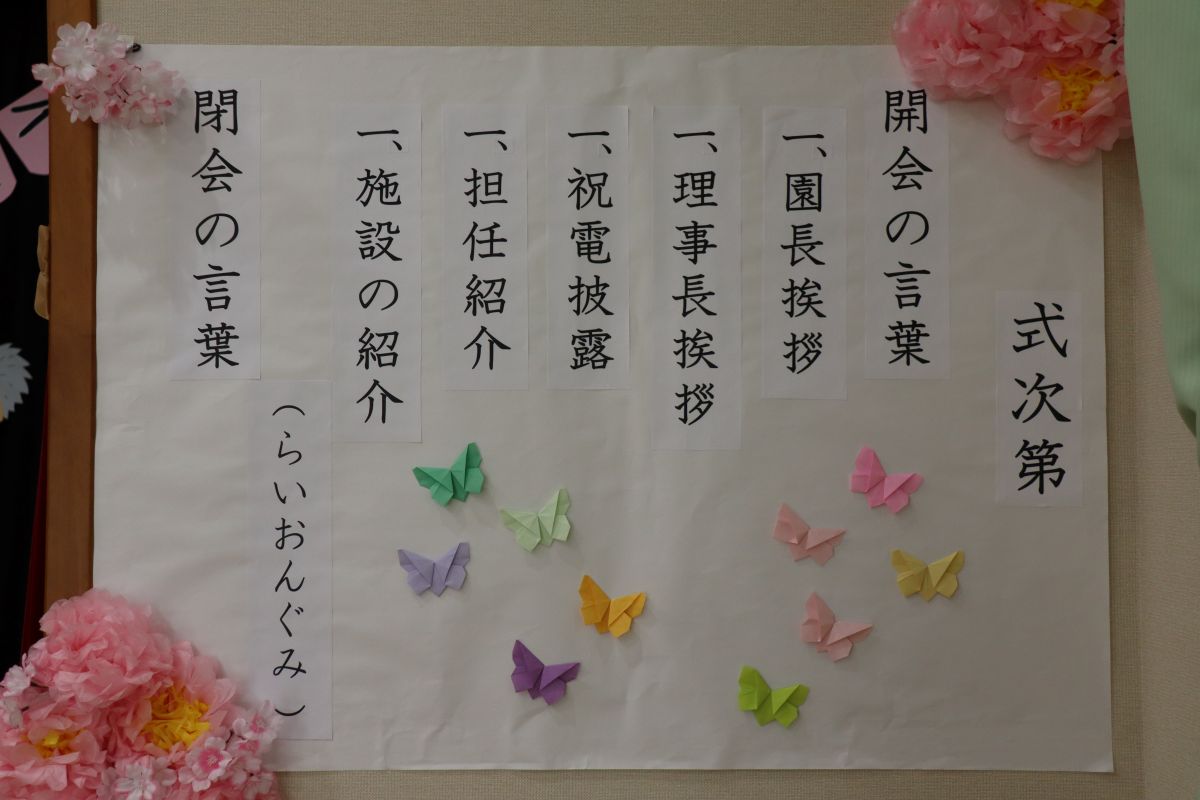 式次第
開会の言葉
一、園長挨拶
一、理事長挨拶
一、祝電披露
一、担任紹介
一、施設の紹介
（らいおんぐみ）
閉会の言葉